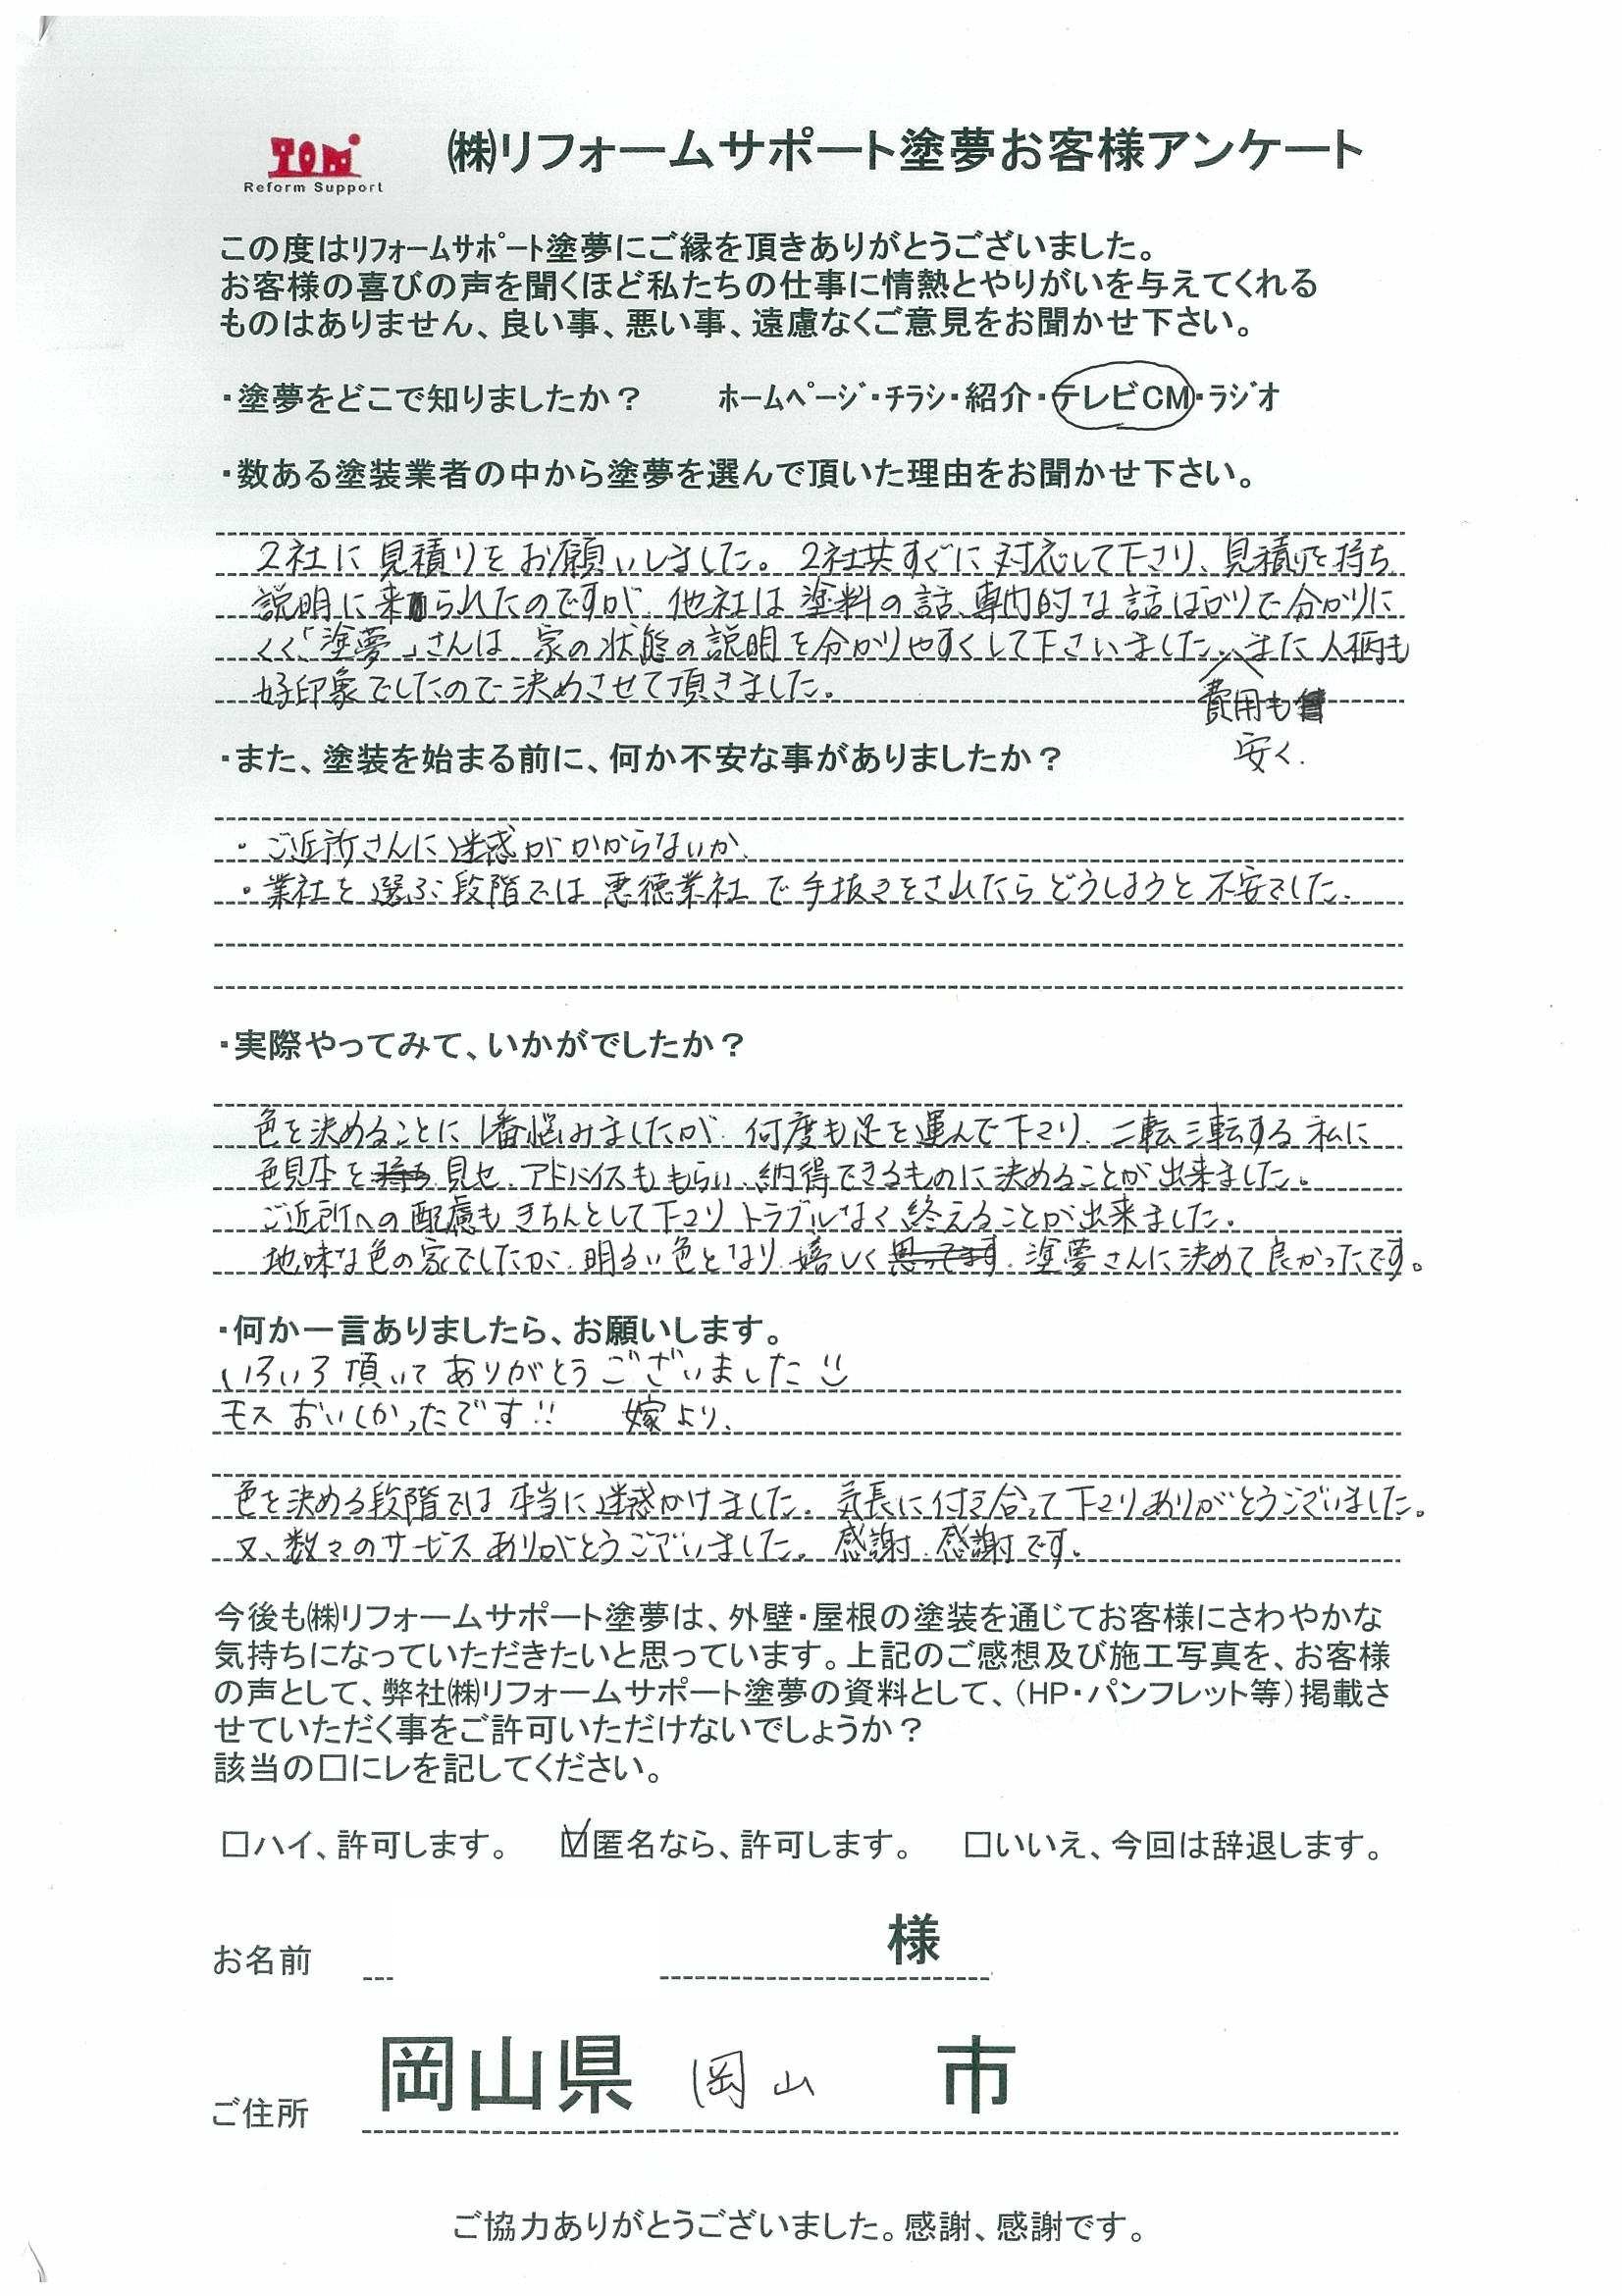 TOM
Reform Support
㈱リフォームサポート塗夢お客様アンケート
この度はﾘﾌｫｰﾑｻﾎﾟｰﾄ塗夢にご縁を頂きありがとうございました。
お客様の喜びの声を聞くほど私たちの仕事に情熱とやりがいを与えてくれる
ものはありません、良い事、悪い事、遠慮なくご意見をお聞かせ下さい。
・塗夢をどこで知りましたか？ ﾎｰﾑﾍﾟｰｼﾞ・ﾁﾗｼ・紹介・テレビCM・ﾗｼﾞｵ
・数ある塗装業者の中から塗夢を選んで頂いた理由をお聞かせ下さい。
2社に見積りをお願いしました。2社共すぐに対応して下さり、見積りを持ち
説明に来られたのですが、他社は塗料の話、専門的な話ばかりで分かりに
くく「塗夢」さんは、家の状態の説明を分かりやすくして下さいました。また人柄も
費用も
安く、
好印象でしたので決めさせて頂きました。
・また、塗装を始まる前に、何か不安な事がありましたか？
・ご近所さんに迷惑がかからないか、
・業社を選ぶ段階では悪徳業社で手抜きをされたらどうしようと不安でした。
・実際やってみて、いかがでしたか？
色を決めることに1番悩みましたが、何度も足を運んで下さり、二転三転する私に
色見本を見せ、アドバイスももらい、納得できるものに決めることが出来ました。
ご近所への配慮もきちんとして下さりトラブルなく終えることが出来ました。
地味な色の家でしたが、明るい色となり、嬉しく思ってます。塗夢さんに決めて良かったです。
・何か一言ありましたら、お願いします。
いろいろ頂いてありがとうございました
モスおいしかったです!! 嫁より、
色を決める段階では本当に迷惑かけました。気長に付き合って下さりありがとうございました。
又、数々のサービスありがとうございました。感謝、感謝です。
今後も㈱リフォームサポート塗夢は、外壁・屋根の塗装を通じてお客様にさわやかな
気持ちになっていただきたいと思っています。上記のご感想及び施工写真を、お客様
の声として、弊社㈱リフォームサポート塗夢の資料として、（HP・パンフレット等）掲載さ
せていただく事をご許可いただけないでしょうか？
該当の□にレを記してください。
□ハイ、許可します。 ☑匿名なら、許可します。 □いいえ、今回は辞退します。
お名前 様
ご住所 岡山県 岡山 市
ご協力ありがとうございました。感謝、感謝です。